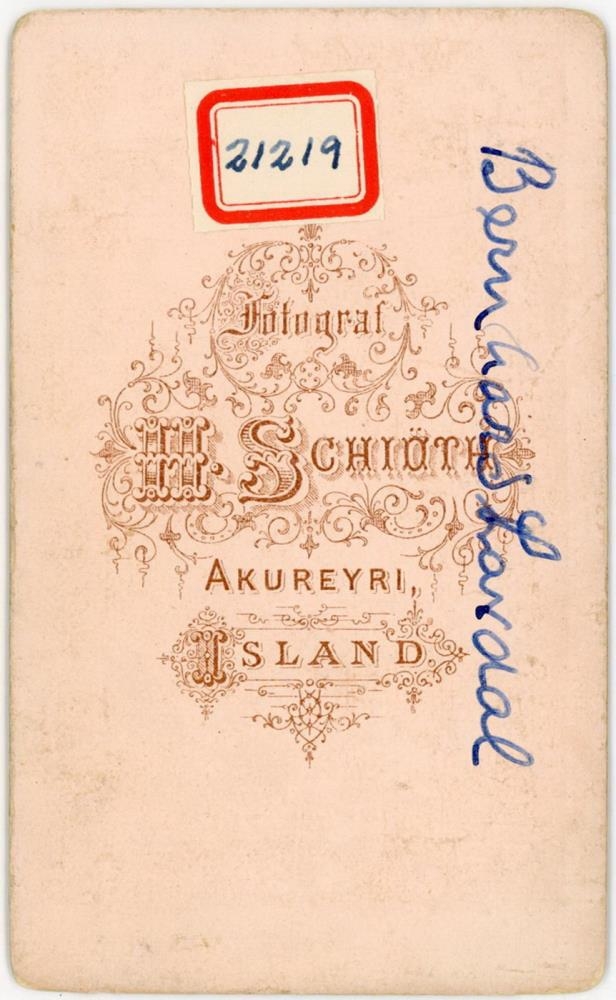 21219
Fotograf
H. SCHIÖTH
AKUREYRI,
ISLAND
Bernhard Laxdal